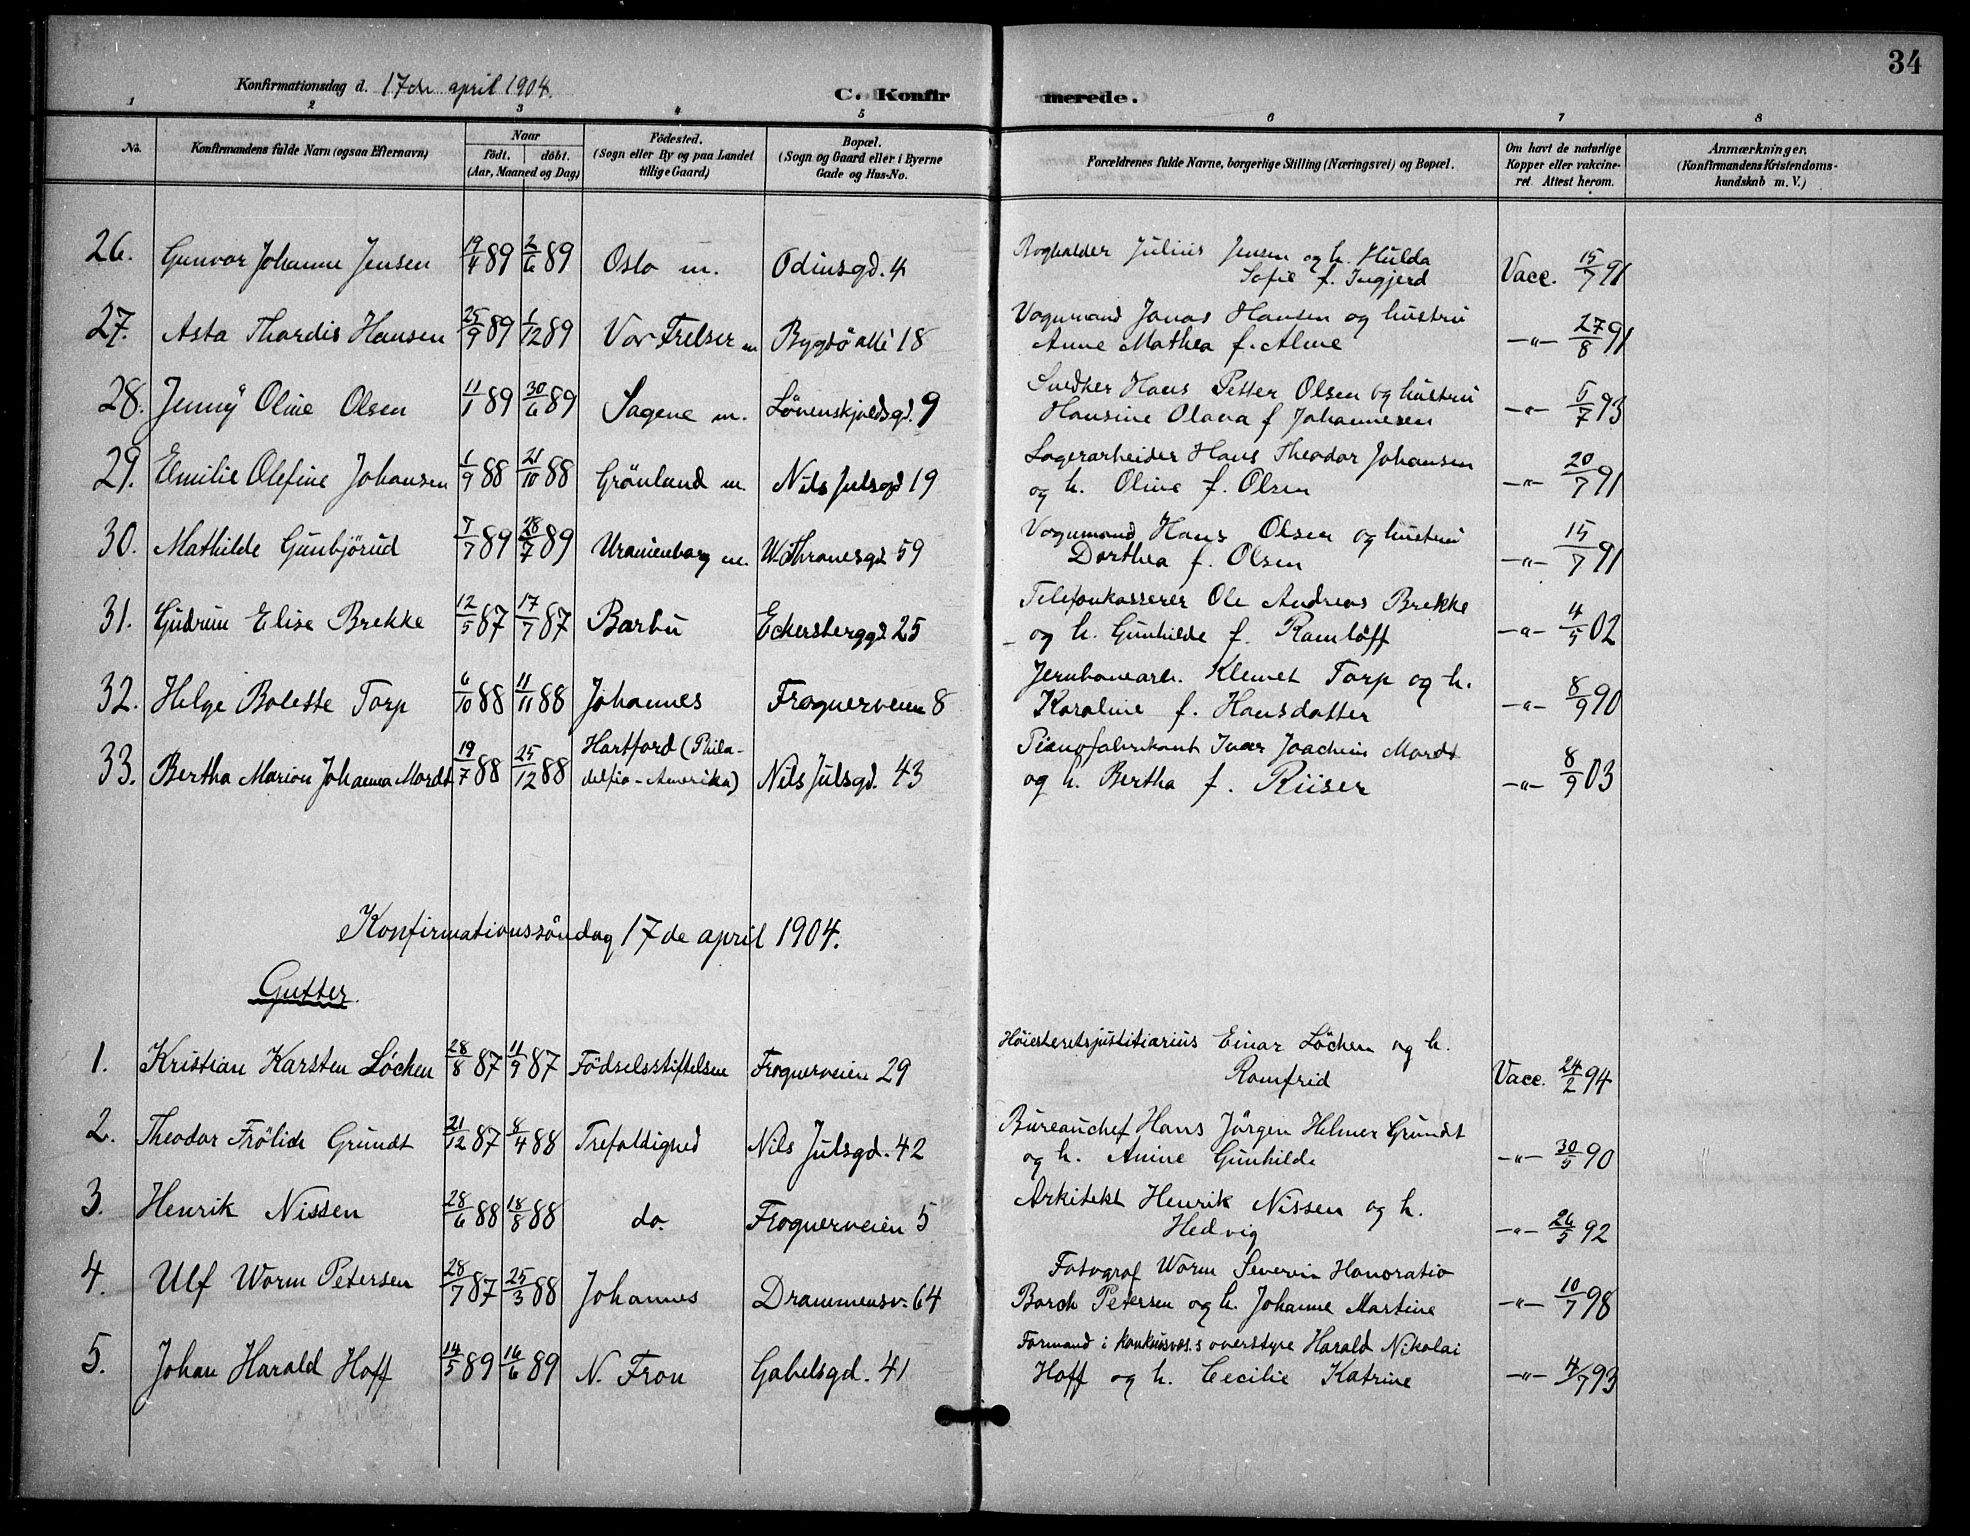 34
Konfirmationsdag d. 17de april 1904.
C. Konfirmerede.
1 2 3 4 5 6 7 8
No. Konfirmandens fulde Navn (ogsaa Efternavn) Naar født. døbt. (Aar, Maaned og Dag) Fødested. (Sogn eller By og paa Landet tillige Gaard) Bopæl. (Sogn og Gaard eller i Byerne Gade og Hus-No. Forældrenes fulde Navne, borgerlige Stilling (Næringsvei) og Bopæl. Om havt de naturlige Kopper eller vakcineret Attest herom. Anmærkninger. (Konfirmandens Kristendomskundskab m. V.)
26. Gunvor Johanne Jensen 19/4 89 2/6 89 Oslo m. Odinsgd. 4 Bogholder Julius Jensen og h. Hulda
Sofie f. Ingjerd Vacc. 15/7 91
27. Asta Thordis Hansen 25/9 89 1/12 89 Vor Frelser m Bygdö allé 18 Vognmand Jonas Hansen og hustru
Anne Mathea f. Alme —"— 27/8 91
28. Jenny Oline Olsen 11/1 89 30/6 89 Sagene m. Lövenskjoldsgd. 9 Snedker Hans Petter Olsen og hustru
Hansine Olava f Johannesen —"— 5/7 93
29. Emilie Olefine Johansen 1/9 88 21/10 88 Grönland m. Nils Julsgd 19 Lagerarbeider Hans Theodor Johansen
og h. Oline f. Olsen —"— 20/7 91
30. Mathilde Gunbjörud 7/7 89 28/7 89 Uranienborg m. W. Thranesgd 59 Vognmand Hans Olsen og hustru
Dorthea f. Olsen —"— 15/7 91
31. Gudrun Elise Brekke 12/5 87 17/7 87 Barbu Eckersberggd 25 Telefonkasserer Ole Andreas Brekke
og h. Gunhilde f. Ramlöff —"— 4/5 02
32. Helga Bolette Torp 6/10 88 11/11 88 Johannes Frognerveien 8 Jernbanearb. Klemet Torp og h.
Karoline f. Hansdatter —"— 8/9 90
33. Bertha Marion Johanna Mordt 19/7 88 25/12 88 Hartford (Phila-
delfia-Amerika) Nils Julsgd. 43 Pianofabrikant Ivar Joachim Mordt
og h. Bertha f. Riiser —"— 8/9 03
Konfirmationssöndag 17de april 1904.
Gutter.
1. Kristian Karsten Löchen 28/8 87 11/9 87 Födselsstiftelsen Frognerveien 29 Höiesteretsjustitiarius Einar Löchen og h.
Romfrid Vacc. 24/2 94
2. Theodor Frölich Grundt 21/12 87 8/4 88 Trefoldighed Nils Julsgd. 42 Bureauchef Hans Jörgen Helmer Grundt
og h. Anine Gunhilde —"— 30/5 90
3. Henrik Nissen 28/6 88 18/8 88 do. Frognerveien 5 Arkitekt Henrik Nissen og h.
Hedvig —"— 26/5 92
4. Ulf Worm Petersen 28/7 87 25/3 88 Johannes Drammensv. 64 Fotograf Worm Severin Honoratio
Borch Petersen og h. Johanne Martine —"— 10/7 98
5. Johan Harald Hoff 14/5 89 16/6 89 N. Fron Gabelsgd. 41 Formand i konkursvæs.s overstyre Harald Nikolai
Hoff og h. Cecilie Katrine —"— 4/7 93